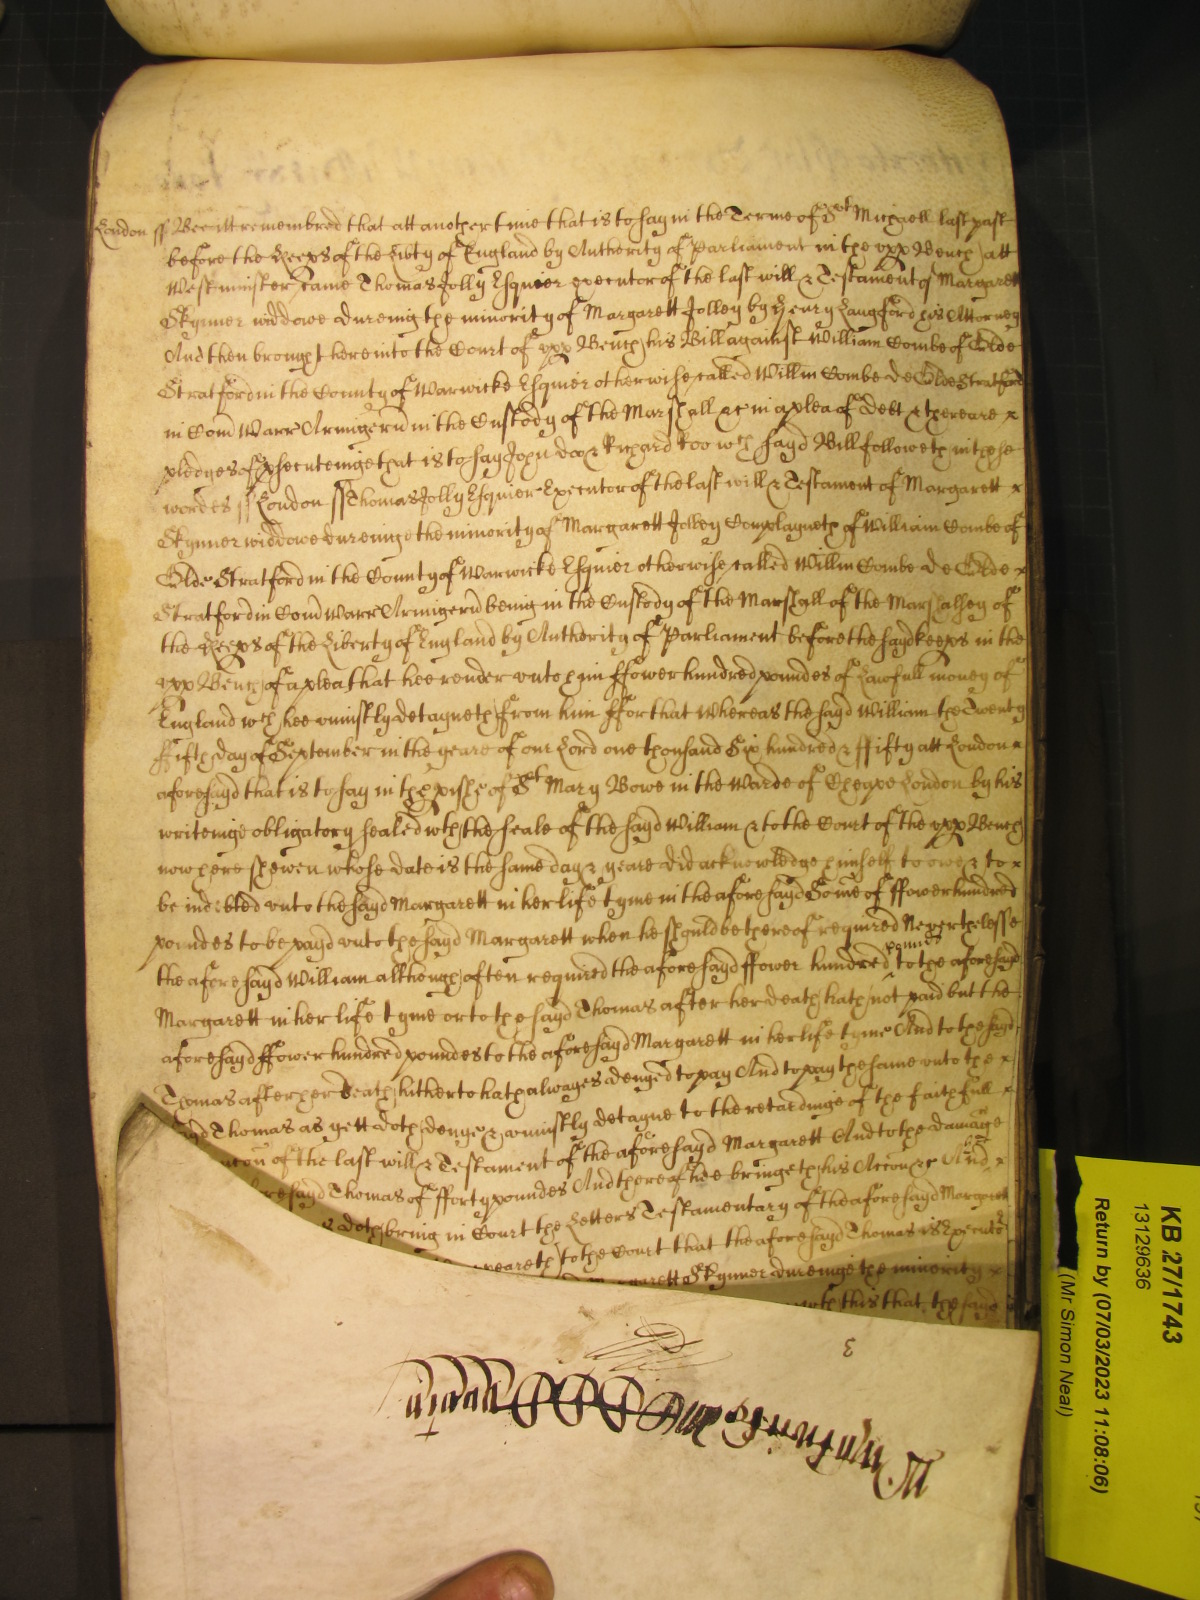 London ss Bee itt remembred that att another time that is to say in the Terme of St Michaell last past
before the Keeps of the Libty of England by Authority of Parliament in the upp Bench att
Westminster came Thomas Jolly Esquier executor of the last will & Testament of Margarett
Skynner widdowe dureinge the minority of Margarett Jolley by Henry Langford his Attorney
And then brought here into the Court of upp Bench his Bill against William Combe of Olde
Stratford in the County of Warwicke Esquier otherwise called Willm Combe de Olde Stratford
in Com Warr Armigerū in the Custody of the Marshall &c in a plea of debt & there are x
pledges of psecuteinge that is to say John doo & Richard Roo wch sayd Bill followeth in these
wordes ss London ss Thomas Jolly Esquier Executor of the last will & Testament of Margarett x
Skynner widdowe dureinge the minority of Margarett Jolley Complayneth of William Combe of
Olde Stratford in the County of Warwicke Esquier otherwise called Willm Combe de Olde x
Stratford in Com Warr Armigerū being in the Custody of the Marshall of the Marshalsey of
the Keeps of the Liberty of England by Authority of Parliament before the sayd keeps in the
upp Bench of a plea that hee render unto him ffower hundred poundes of Lawfull money of
England wch hee uniustly detayneth from him ffor that whereas the sayd William the Twenty
ffifth day of September in the yeare of our Lord one thousand Six hundred & ffifty att London x
aforesayd that is to say in the pishe of St Mary Bowe in the Warde of Cheape London by his
writeinge obligatory sealed wth the seale of the sayd William & to the Court of the upp Bench
now here shewen whose date is the same day & yeare did acknowledge himself to owe & to x
be indebted unto the sayd Margarett in her life tyme in the aforesayd Some of ffower hundred
poundes to be payd unto the sayd Margarett when he should be thereof required Neverthelesse
the aforesayd William although often required the aforesayd ffower hundred pounds to the aforesayd
Margarett in her life tyme or to the sayd Thomas after her death hath not paid but the
aforesayd ffower hundred poundes to the aforesayd Margarett in her life tyme And to the sayd
Thomas after her death hitherto hath alwayes denyed to pay And to pay the same unto the x
Thomas as yett doth denye & uniustly detayne to the retardinge of the faithfull x
of the last will & Testament of the aforesayd Margarett And to the damage
Thomas of fforty poundes And thereof hee bringeth his Accon &c And he x
doth bring in Court the Letters Testamentary of the aforesayd Margarett
to the Court that the aforesayd Thomas is Executor
Skynner dureinge the minority x
this that the sayd
3
KB 27/1743
13129636
Return by (07/03/2023 11:08:06)
(Mr Simon Neal)